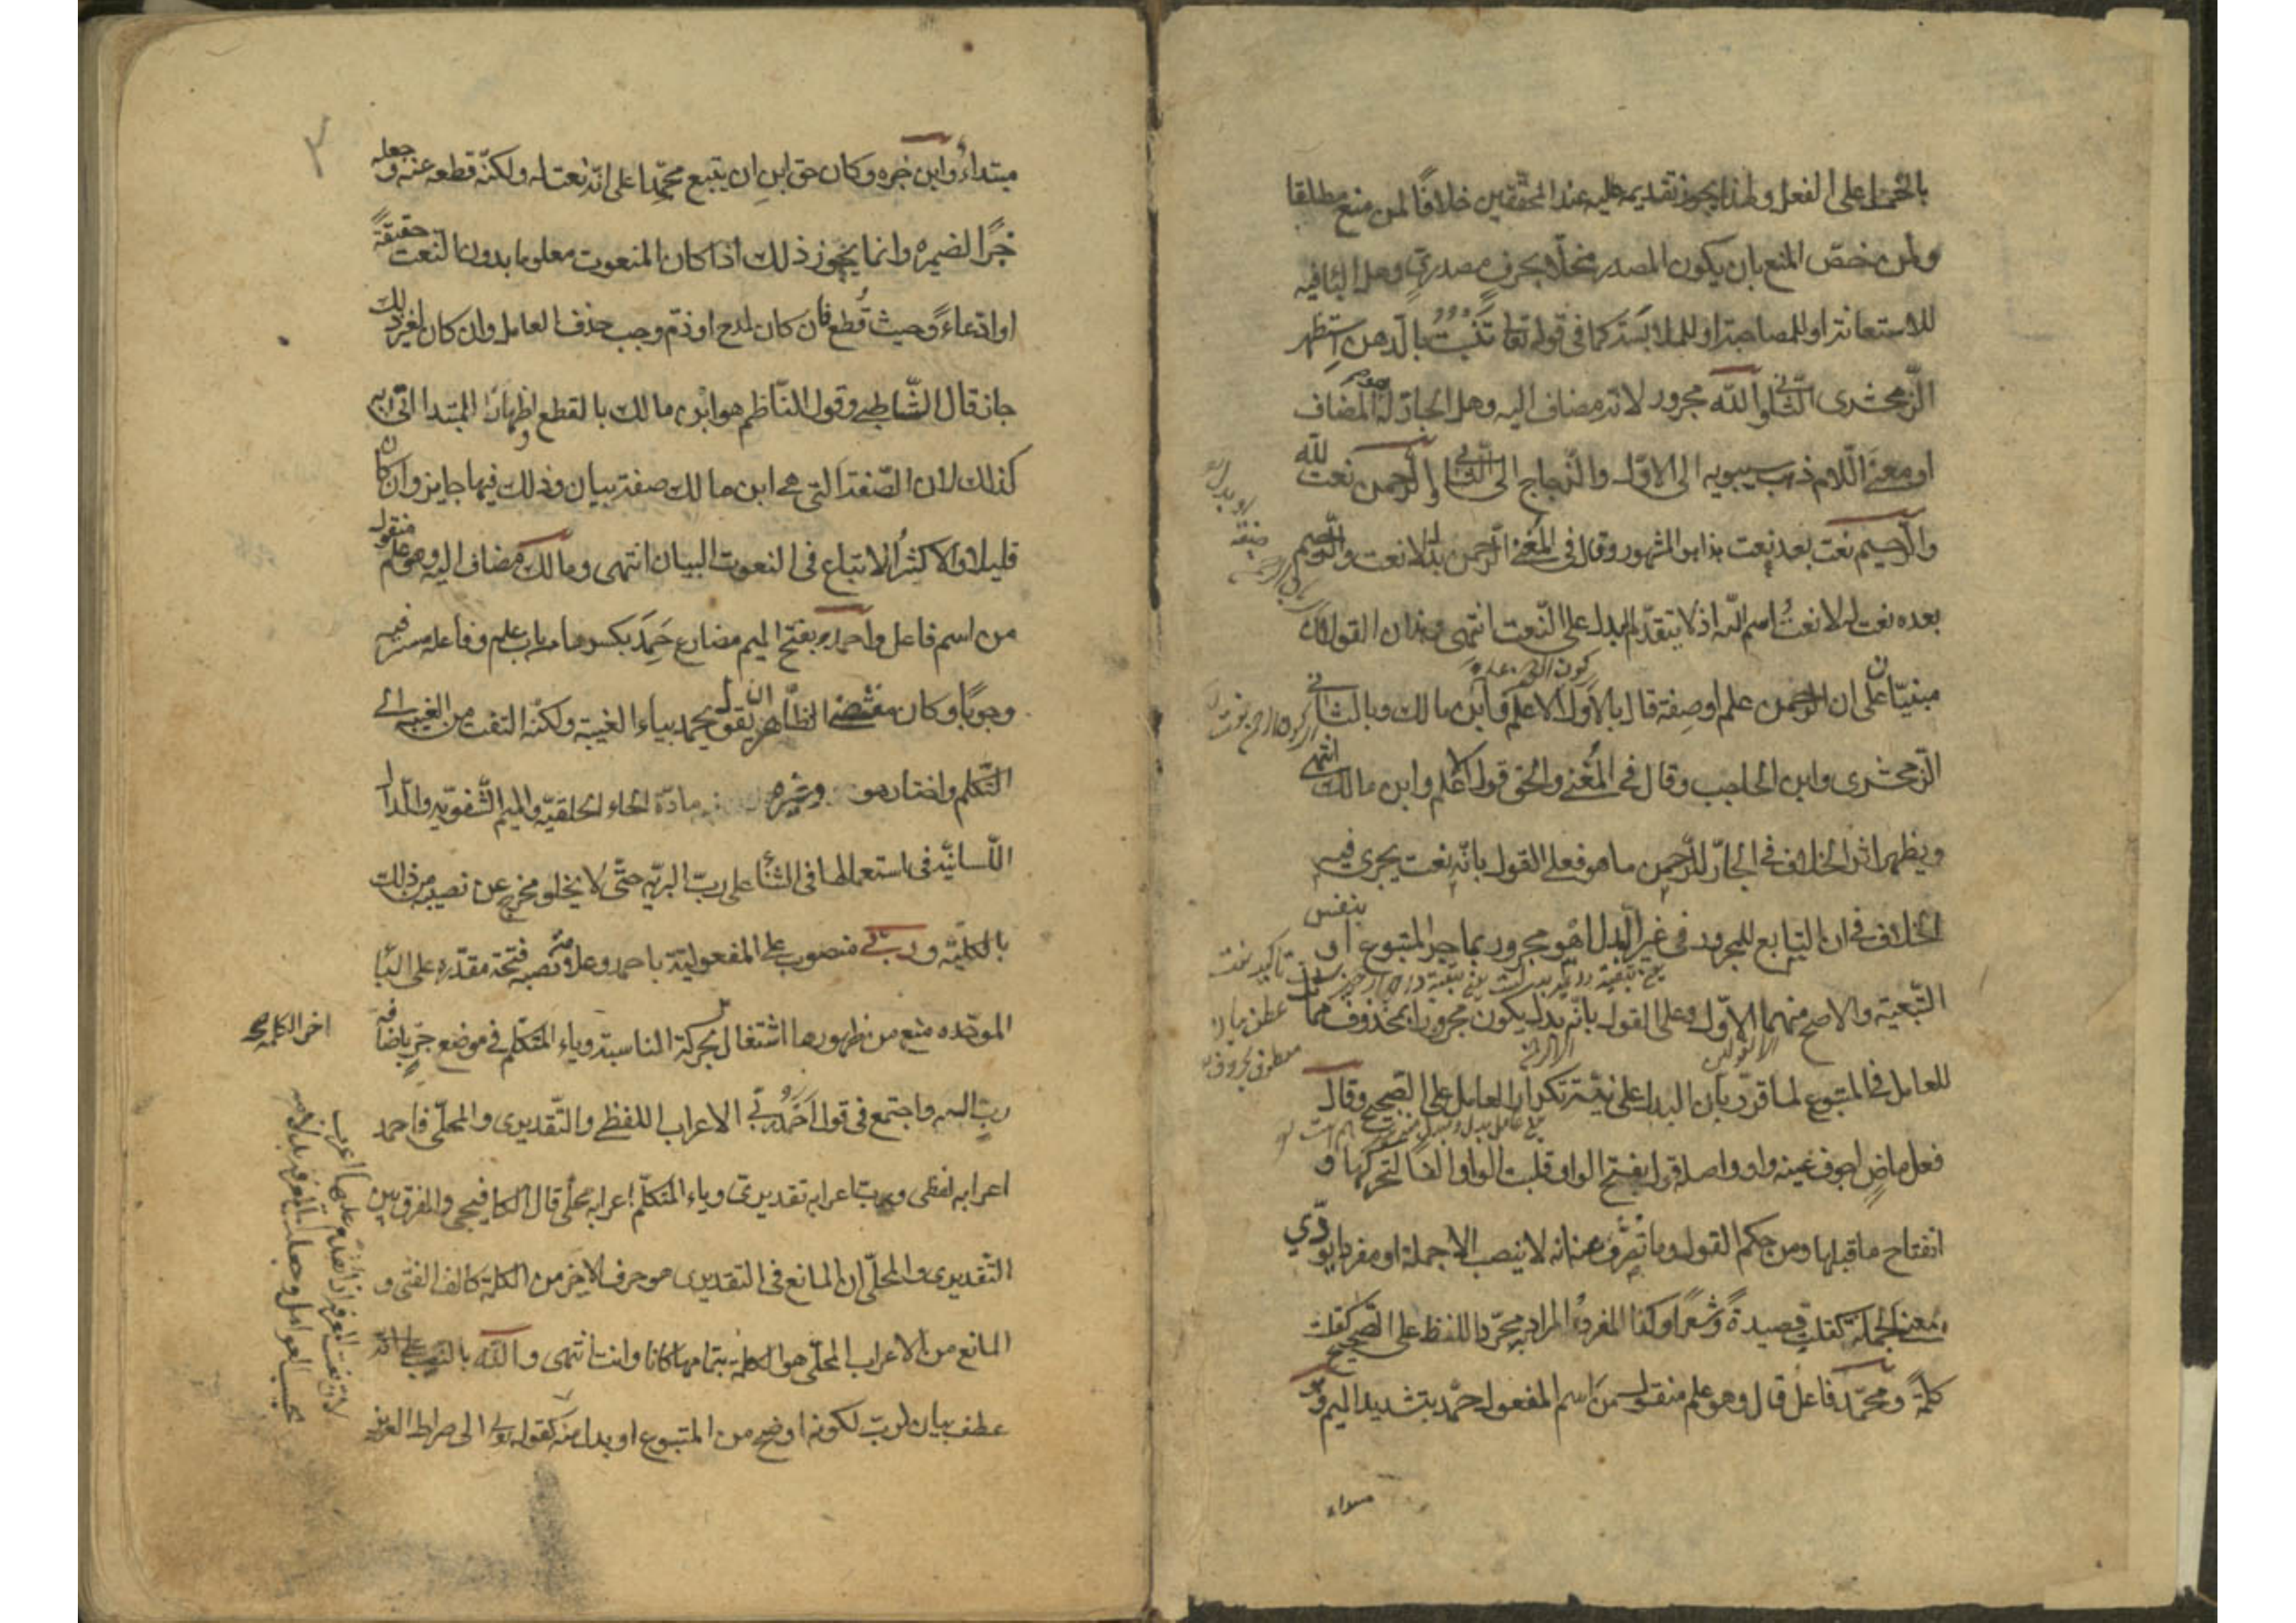 بالحمل على الفعل ولهذا يجوز تقديمه عليه عند المحققين خلافًا لمن منع مطلقا
ولمن خصّ المنع بان يكون المصدر منحلّا بحرفٍ مصدريّ وهل الباء فيه
للاستعانة او للمصاحبة او للملابسة كما في قوله تعا تَنْبُتُ بالدّهن استظهر
الزّمخشرى الثّانى والله مجرور لانه مضاف اليه وهل الجارّ له المضاف
او معنى اللّام ذهب سيبويه الى الاوّل والزّجاج الى الثّانى والرّحمن نعت لله
والرّحيم نعت بعد نعت هذا هو المشهور وقال فى المُغنى الرّحمن بدل لا نعت والرّحيم
بعده نعت له لا نعتُ اسم الله اذ لا يتقدّم البدل على النّعت انتهى وهذان القولان
مبنيّان على ان الرّحمن علم او صفة قال بالاوّل الاعلم وابن مالك وبالثّانى
الزّمخشرى وابن الحاجب وقال فى المُغنى والحق قول الاعلم وابن مالك انتهى
ويظهر اثر الخلاف فى الجارّ للرّحمن ما هو فعلى القول بانّه نعت يجرى فيه
الخلاف فى ان التابع للمجرور فى غير البدل اهو مجرور بما جر المتبوع او بنفس
التّبعيّة والاصح منهما الاوّل وعلى القول بانّه بدل يكون مجرورا بمحذوف مماثل
للعامل فى المتبوع لما قرّر بان البدل على نيّة تكرار العامل على الصّحيح وقال
فعل ماضٍ اجوف عينه واو واصله قول بفتح الواو قلبت الواو الفًا لتحركها و
انفتاح ما قبلها ومن حكم القول وما تصرّف منه انه لا ينصب الا جملة او مفردا يؤدّي
معنى الجملة كقلت قصيدةً وشعرًا وكذا المفرد المراد به مجرّد اللفظ على الصّحيح كقلت
كلمةً ومحمّد فاعل قال وهو علم منقول من اسم المفعول حمّد بتشديد الميم وهو
مبتداء وابن خبره وكان حق ابن ان يتبع محمّدا على انّه نعت له ولكنّه قطعه عنه وجعله
خبرًا لضميره وانما يجوز ذلك اذا كان المنعوت معلوما بدون النعت حقيقةً
او ادّعاءً وحيث قُطع فان كان لمدح او ذمّ وجب حذف العامل وان كان لغير ذلك
جاز قال الشّاطبى وقول النّاظم هو ابن مالك بالقطع اظهارا المبتدا اتى به
كذلك لان الصّفة التى هى ابن مالك صفة بيان وذلك فيها جايز وان كان
قليلا والاكثر الاتباع فى النعوت البيان انتهى ومالك مضاف اليه وهو علم منقول
من اسم فاعل واحمد بفتح الميم مضارع حَمِدَ بكسرها من باب علم وفاعله مستتر فيه
وجوبًا وكان مقتضى الظّاهر ان يقول يحمد بياء الغيبة ولكنّه التفت من الغيبة الى
التّكلم واختار هو مادّة الحاء الحلقيّة والميم الشّفويّة والدّال
اللّسانيّة فى استعمالها فى الثناء على ربّ البريّه حتّى لا يخلو مخرج عن نصيبه من ذلك
بالكليّة وربّى منصوب على المفعوليّة باحمد وعلامة نصبه فتحة مقدّره على الباء
الموحّده منع من ظهورها اشتغال بحركة المناسبة وياء المتكلّم فى موضع جرّ باضافة
ربّ اليه واجتمع فى قوله احمد ربّى الاعراب اللفظى والتّقديرى والمحلّى فاحمد
اعرابه لفظى وربّ اعرابه تقديرى وياء المتكلّم اعرابه محلّى قال الكافيجى والفرق بين
التّقديرى والمحلّى ان المانع فى التقديرى هو حرف الاخير من الكلمة كالف الفتى و
المانع من الاعراب المحلّى هو الكلمة بتمامها كانا وانت انتهى والله بالنّصب على انّه
عطف بيان لربّ لكونه اوضح من المتبوع او بدل منه كقوله تعالى الى صراط العزيز